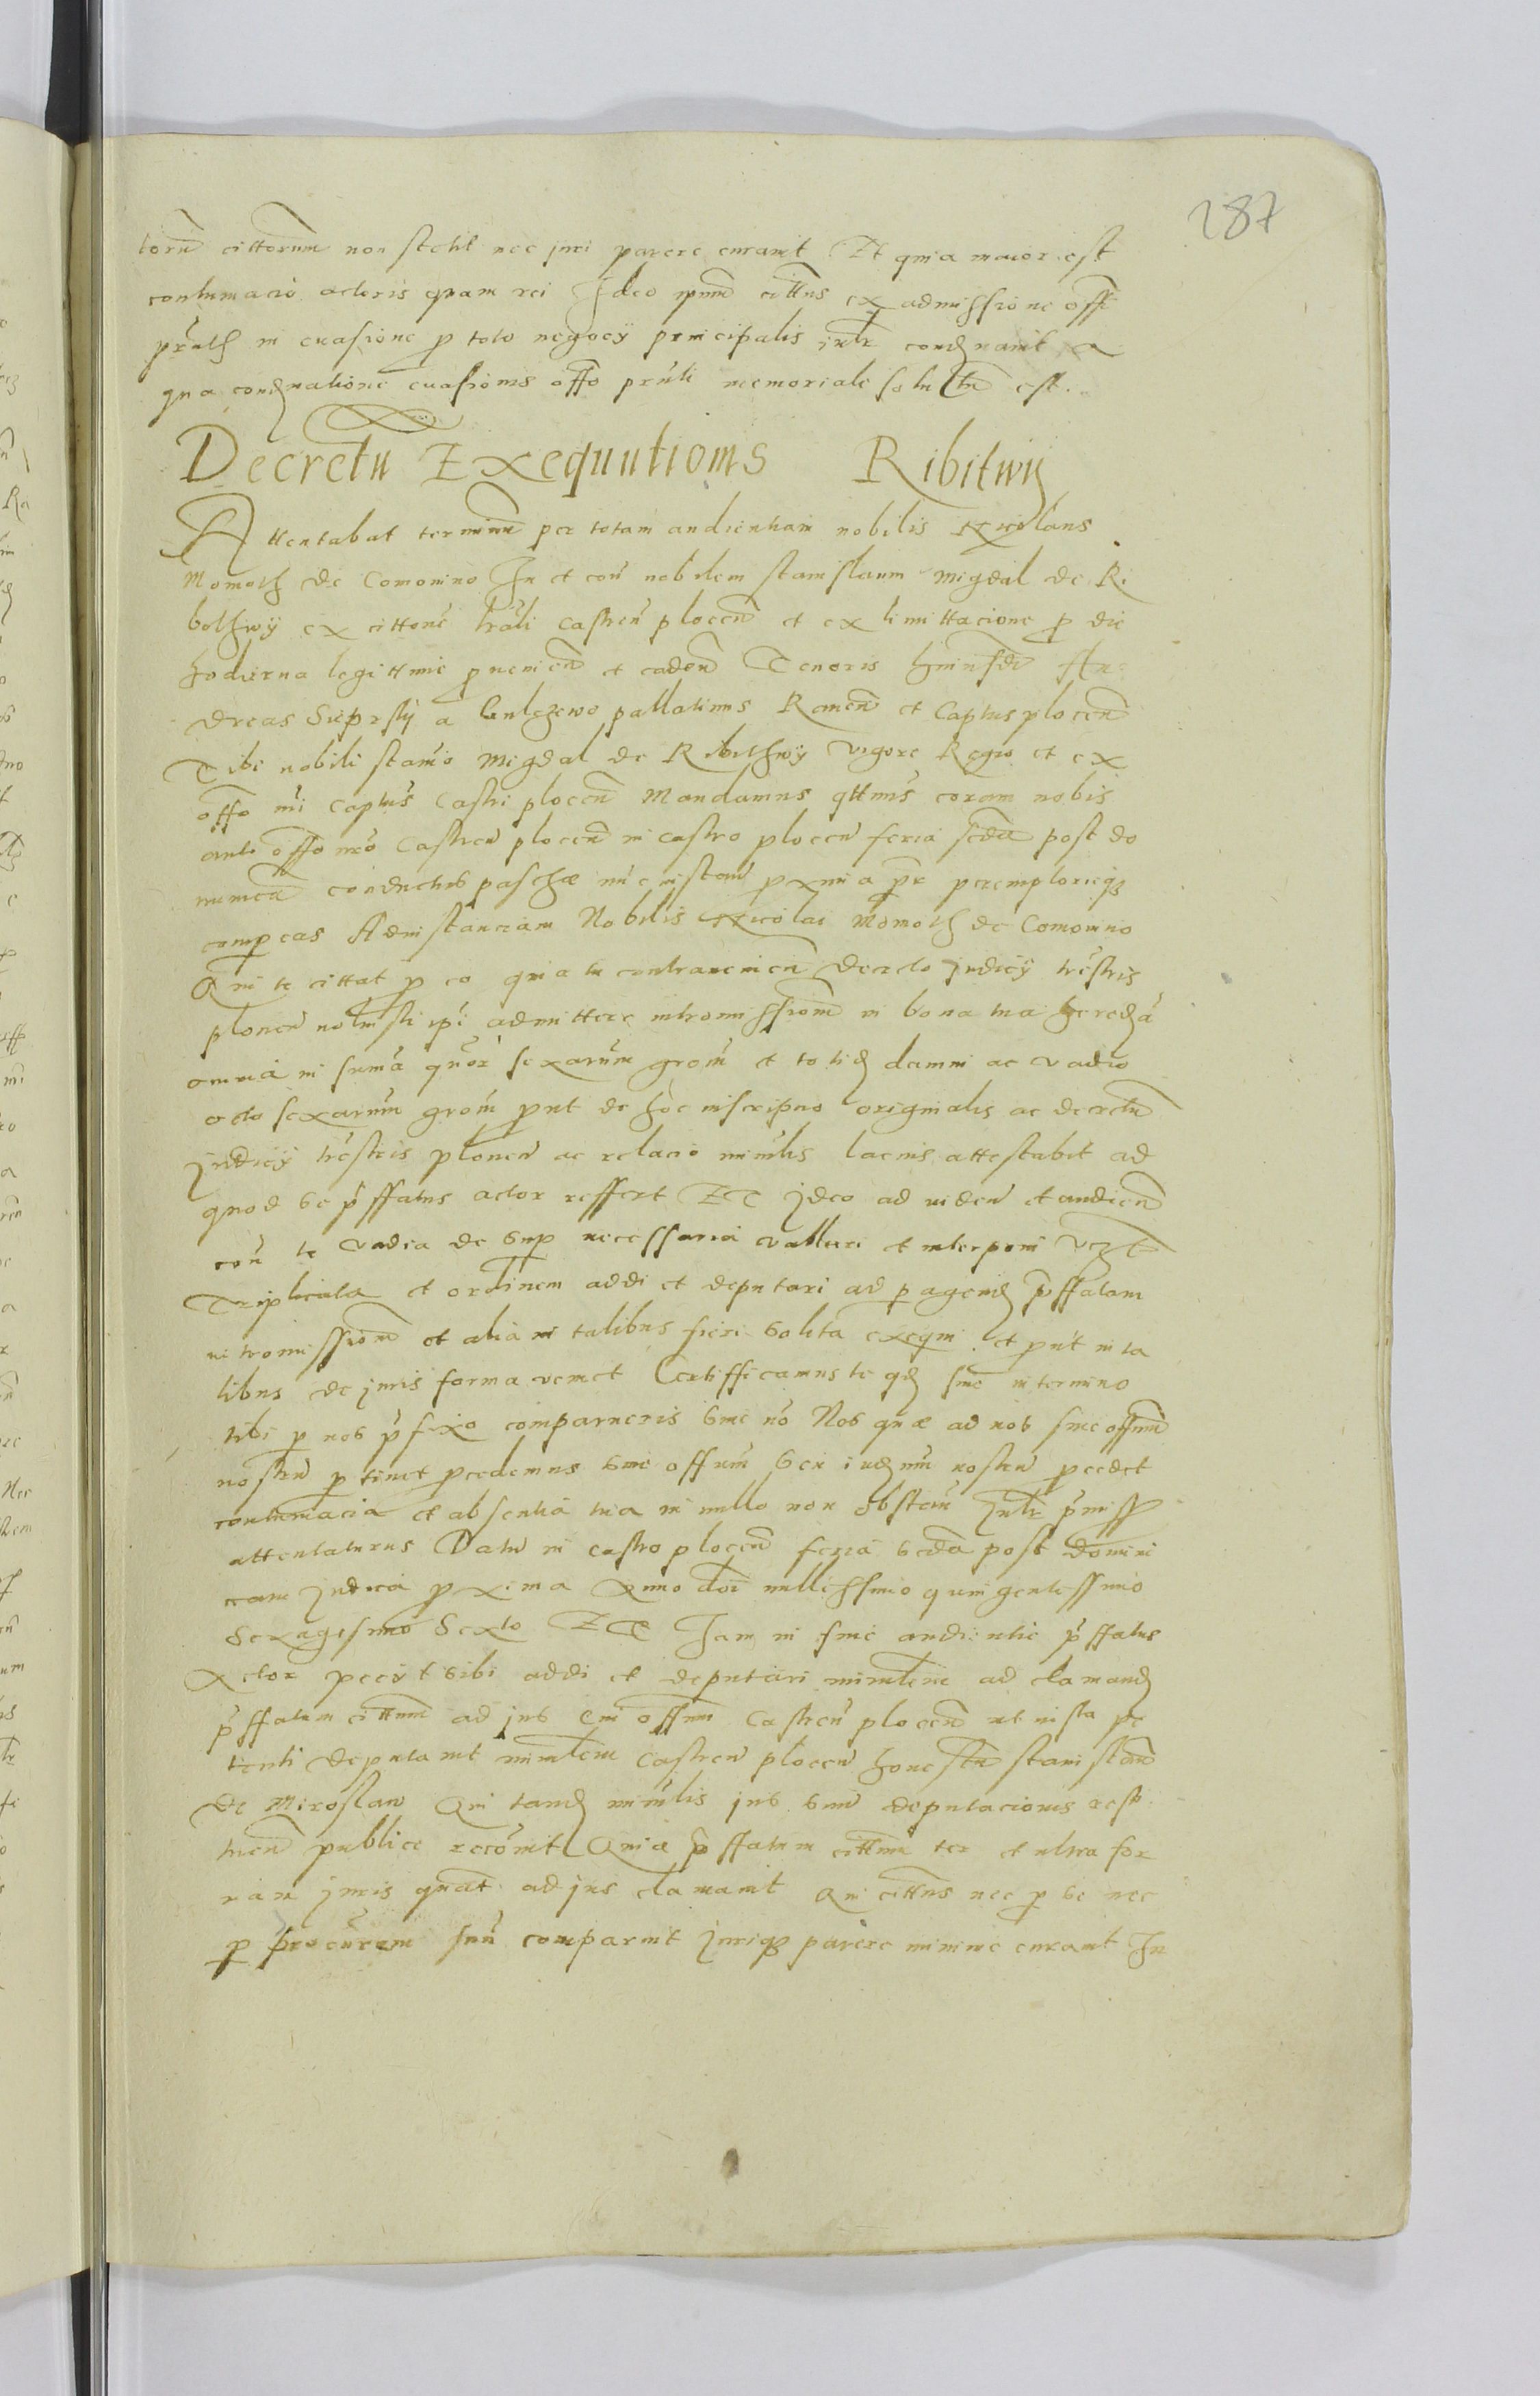 287
torū cittorum non stetit nec juri parere curavit Et quia maior est
contumacia actoris quam rei Ideo ipsum cittus ex admissione offi
prntis in evasione p toto negocy principalis iudr condnavit a
qua condnatione evasionis offo prnti memoriale solutū est.
Decretū Exequutionis Ribitwy
Attentabat terminū per totam audientiam nobilis Nicolaus
Momoth de Comonino In et con nobilem Stanislaum Migdal de Ri
bithwy ex cittone lrali castren plocen et ex limittacione p die
hodierna legittime pvenien et caden Tenoris huiusdi An
dreas Sieprsky a Gulczewo pallatinus Raven et Captus plocen
Tibi nobili Stanio Migdal de Ribithwy vigore Regio et ex
offo nri Captus Castri plocen Mandamus qttnus coram nobis
ante offo nro Castren plocen in castro plocen feria scda post do
minicā conductus paschæ nūc instan pxima pr peremptorieq
compeas Ad instanciam Nobilis Nicolai Momoth de Comonino
Qui te cittat p eo quia tu contravenien decreto judicy trestris
plonen noluisti ipi admittere intromissionē in bona tua heredā
omnia in suma quor sexarum grom et totid damni ac vadio
octo sexarum grom put de hoc inscripno originalis ac decretū
judicy trestris plonen ac relacio mintlis lacius attestabit ad
quod se pffatus actor reffert Etc ideo ad viden et audien
con te vadia de sup necessaria vallari et interponi vzt
Triplicata et ordinem addi et deputari ad peragend pffatam
intromissionē et alia in talibus fieri solita exequi et put in ta
libus de juris forma venit Certifficamus te qd sive in termino
tibi p nos pfixo comparueris sive no Nos quæ ad nos sive offium
nostrū ptinet pcedemus sive offium seu iudium nostrū pcedet
contumacia et absentia tua in nullo non obstan Intr pmiss
attentaturus Datū in castro plocen feria scda post domini
cam judica pxima Anno doi millessimo quingentessimo
sexagesimo Sexto Etc Iam in fine audientie pffatus
Actor peciyt sibi addi et deputari mintlem ad clamand
pffatum cittum ad jus Cui offium Castren plocen ut iusta pe
tenti deputavit mintlem castren plocen honestū stanislaū
de Miroslaw Qui tand mintlis jus suū deputacionis
publice recoūit Quia pffatum cittum ter et ultra for
mam juris quat ad jus clamavit Qui cittus nec p se nec
p procurem suū comparuit jurique parere minime curavit In